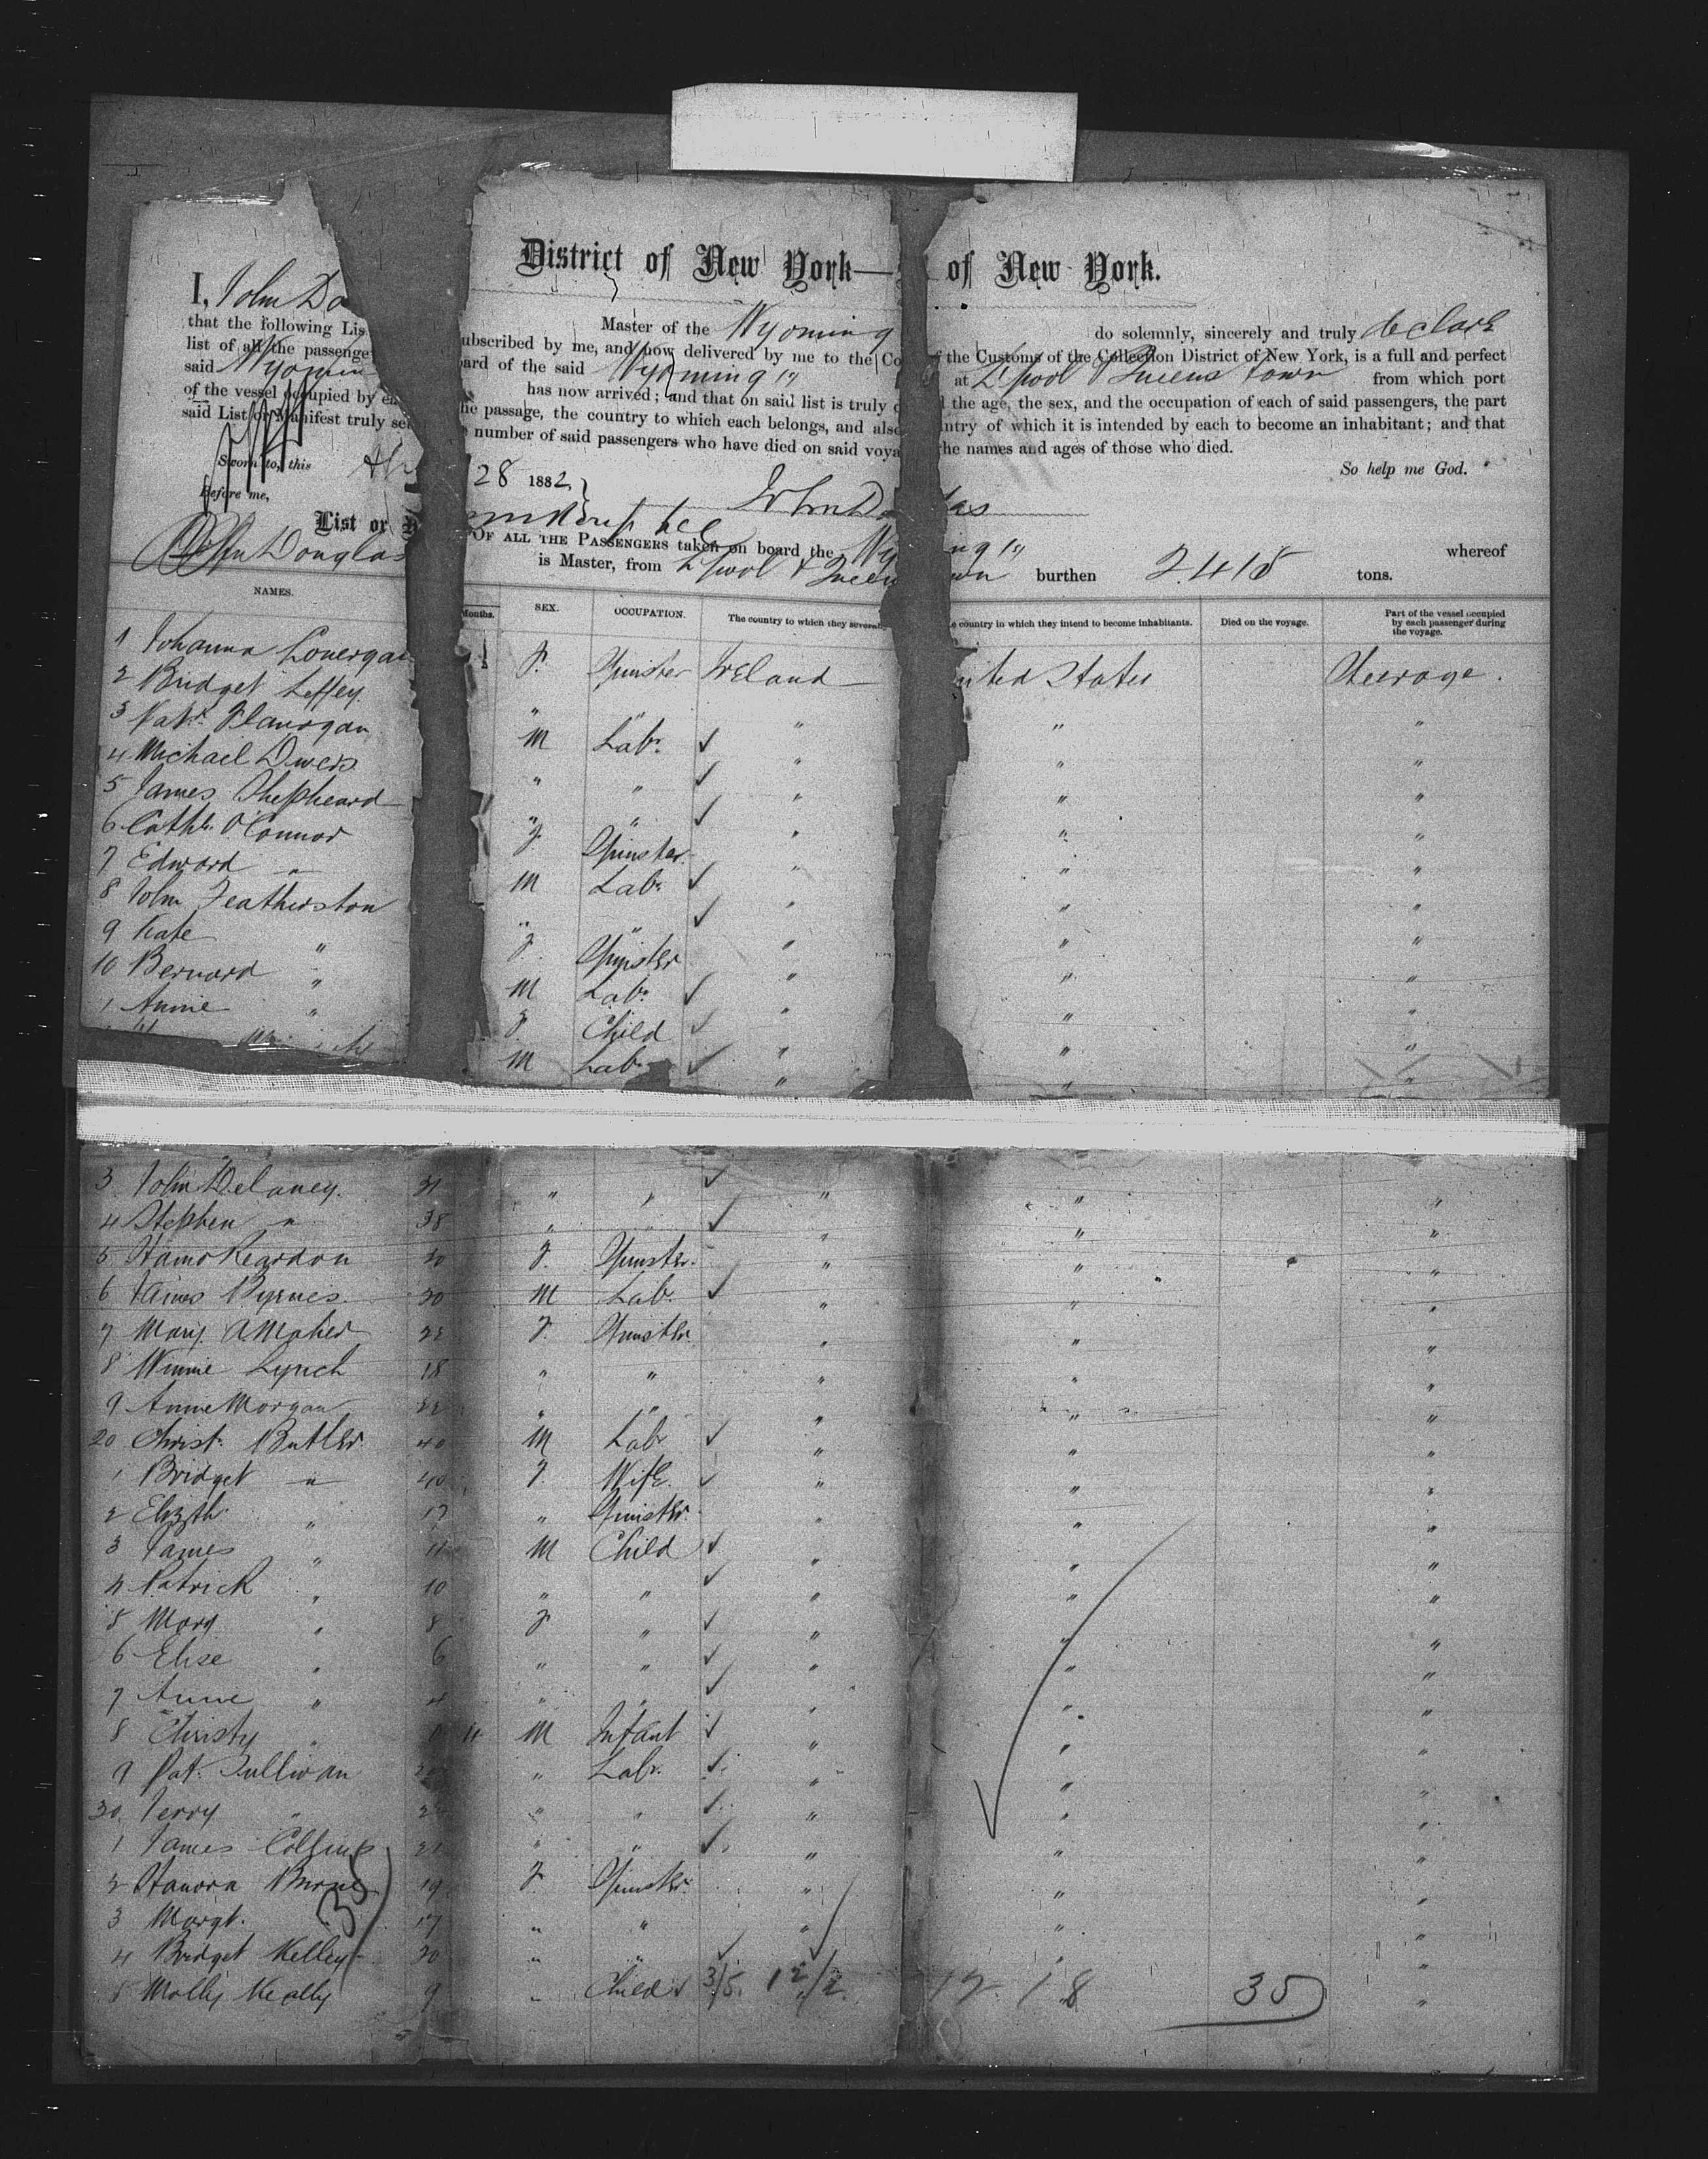 District of New York— of New York.
I, John Do Master of the Wyoming do solemnly, sincerely and truly declare
that the following Lis ubscribed by me, and now delivered by me to the Co the Customs of the Collection District of New York, is a full and perfect
list of all the passenge ard of the said Wyoming at L'pool & Queenstown from which port
said Wyomin has now arrived; and that on said list is truly the age, the sex, and the occupation of each of said passengers, the part
of the vessel occupied by e he passage, the country to which each belongs, and also ntry of which it is intended by each to become an inhabitant; and that
said List or Manifest truly se number of said passengers who have died on said voya he names and ages of those who died.
So help me God.
Sworn to, this 28 1882
Before me, John Do las
List or OF ALL THE PASSENGERS taken on board the Wy ing whereof
John Douglas is Master, from L'pool & Queen own burthen 2418 tons.
NAMES. Months. SEX. OCCUPATION. The country to which they several e country in which they intend to become inhabitants. Died on the voyage. Part of the vessel occupied by each passenger during the voyage.
1 Johanna Lonergan F. Spinster Ireland nited States Steerage.
2 Bridget Leffey " " " " "
3 Patk. Flanagan M Labr. " " "
4 Michael Dwers " " " " "
5 James Shepheard " " " " "
6 Cathe. O'Connor F Spinster " " "
7 Edward " M Labr. " " "
8 John Featherston " " " " "
9 Kate " F. Spinster " " "
10 Bernard " M Labr. " " "
1 Annie " F. Child " " "
M Labr. " " "
3 John Delaney 31 " " " " "
4 Stephen " 38 " " " " "
5 Hano Reardon 30 F. Spinster. " " "
6 James Byrnes 20 M Labr. " " "
7 Mary A Maher 22 F. Spinster. " " "
8 Winnie Lynch 18 " " " " "
9 Annie Morgan 22 " " " " "
20 Christ. Butler 40 M Labr " " "
1 Bridget " 40 F. Wife. " " "
2 Elizth " 17 " Spinster. " " "
3 James " 11 M Child " " "
4 Patrick " 10 " " " " "
5 Mary " 8 F " " " "
6 Elise " 6 " " " " "
7 Annie " 4 " " " " "
8 Christy " 11 M Infant " " "
9 Pat. Sullivan " Labr. " " "
30 Jerry " 22 " " " " "
1 James Collins 21 " " " " "
2 Hanora Burne 19 F. Spinster. " " "
3 Margt. 17 " " " " "
4 Bridget Kelley 20 " " " "
5 Molly Keally 9 " Child 3/5. 12/2 17 18 35 "